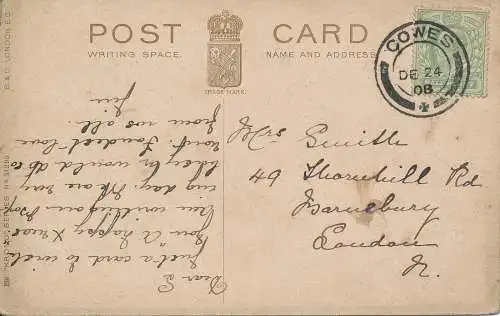 POST CARD
WRITING SPACE.
NAME AND ADDRESS
TRADE MARK.
COWES
DE 24
08
B & D. LONDON E.C.
"KROMO" SERIES No
Dear
Just a card to wish
you "A happy Xmas
am writing on
day. We are very
busy or would do so
now. Fondest love
from us all.
Mrs Smith
49 Thornhill Rd
Barnsbury
London
N.